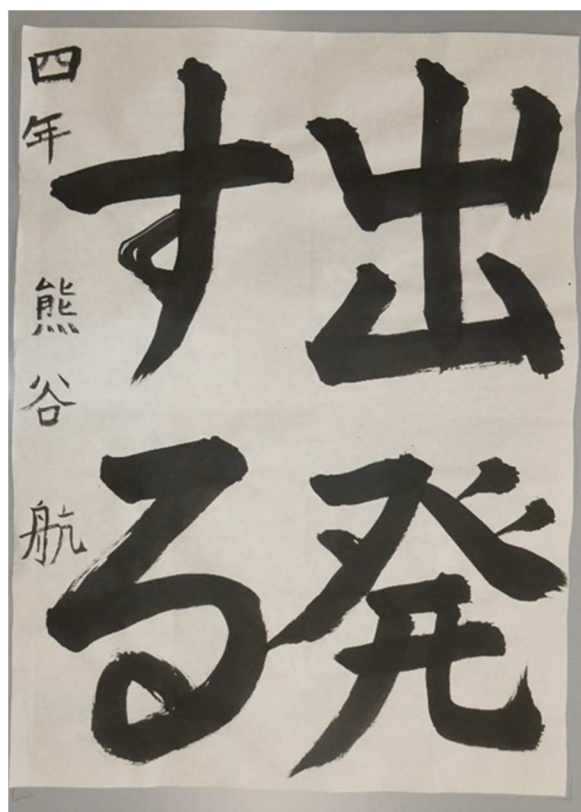 出発
する
四年 熊谷 航